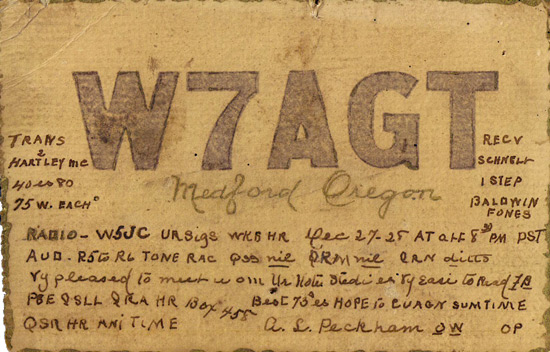 W7AGT
Medford Oregon
TRANS
2
HARTLEY MC
40 and 80
75 W. EACH
RECV
SCHNELL
1 STEP
BALDWIN
FONES
RADIO - W5JC UR SIGS WKD HR Dec 27-25 AT 8 30 PM PST
AUD. R5 to R6 TONE RAC QSS nil QRM nil QRN ditto
Vy pleased to meet u om Ur Note Steady es Vy Easy to Read FB
PSE QSLL QRA HR Box 458 Best 73's es HOPE TO CUAGN SUMTIME
QSR HR ANI TIME A. L. Peckham OW OP